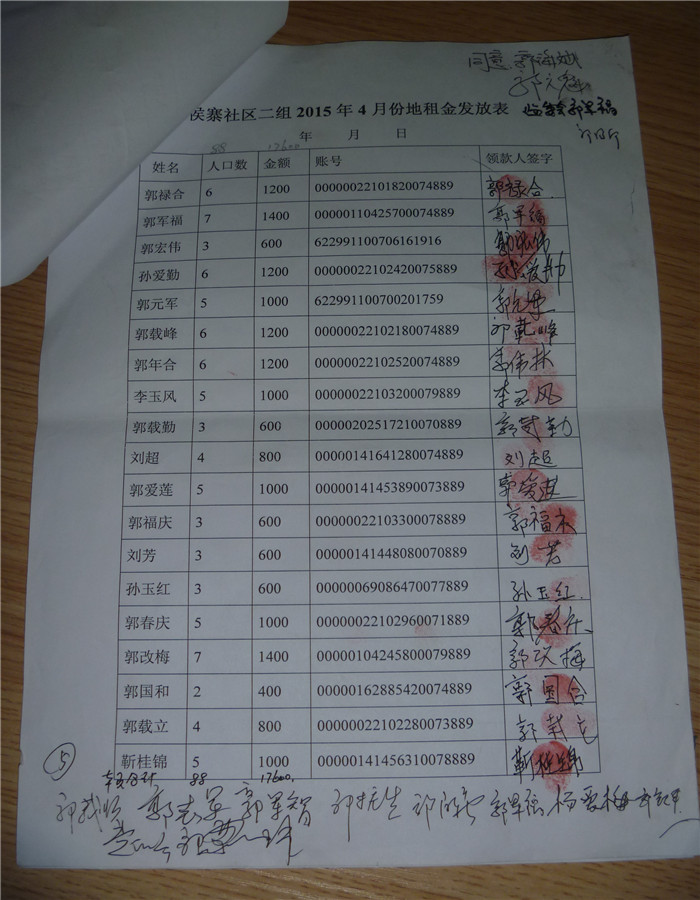 同意
侯寨社区二组 2015 年 4 月份地租金发放表
年 月 日
88 17600
姓名 人口数 金额 账号 领款人签字
郭禄合 6 1200 00000022101820074889 郭禄合
郭军福 7 1400 00000110425700074889 郭军福
郭宏伟 3 600 622991100706161916 郭宏伟
孙爱勤 6 1200 00000022102420075889 孙爱勤
郭元军 5 1000 622991100700201759 郭元军
郭载峰 6 1200 00000022102180074889 郭载峰
郭年合 6 1200 00000022102520074889
李玉风 5 1000 00000022103200079889 李玉风
郭载勤 3 600 00000202517210070889 郭载勤
刘超 4 800 00000141641280074889 刘超
郭爱莲 5 1000 00000141453890073889 郭爱莲
郭福庆 3 600 00000022103300078889 郭福庆
刘芳 3 600 00000141448080070889 刘芳
孙玉红 3 600 00000069086470077889 孙玉红
郭春庆 5 1000 00000022102960071889 郭春庆
郭改梅 7 1400 00000104245800079889 郭改梅
郭国和 2 400 00000162885420074889 郭国合
郭载立 4 800 00000022102280073889 郭载立
靳桂锦 5 1000 00000141456310078889 靳桂锦
⑤ 88 17600
郭志军 郭军智 郭军福 杨爱梅